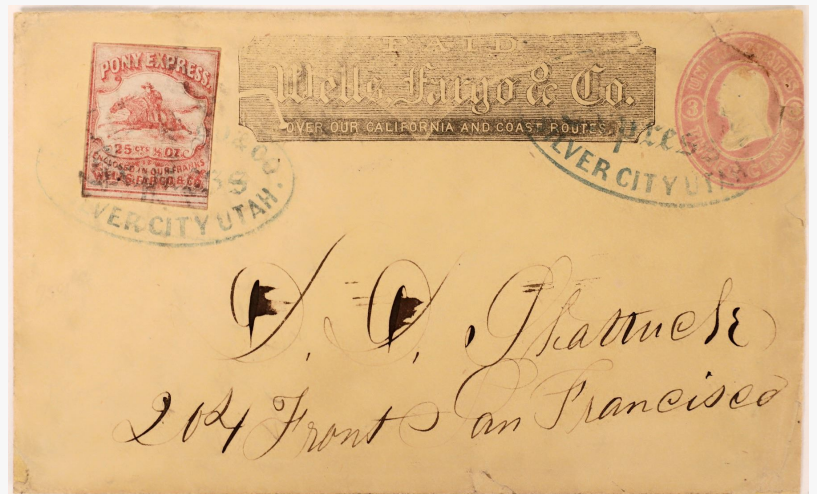 PONY EXPRESS
25 CTS ½ OZ.
ENCLOSED IN OUR FRANKS
WELLS, FARGO & CO.
& CO
VER CITY UTAH.
PAID
Wells, Fargo & Co.
OVER OUR CALIFORNIA AND COAST ROUTES.
UNITED STATES
3 3
LVER CITY UT
D. D. Shattuck
204 Front San Francisco